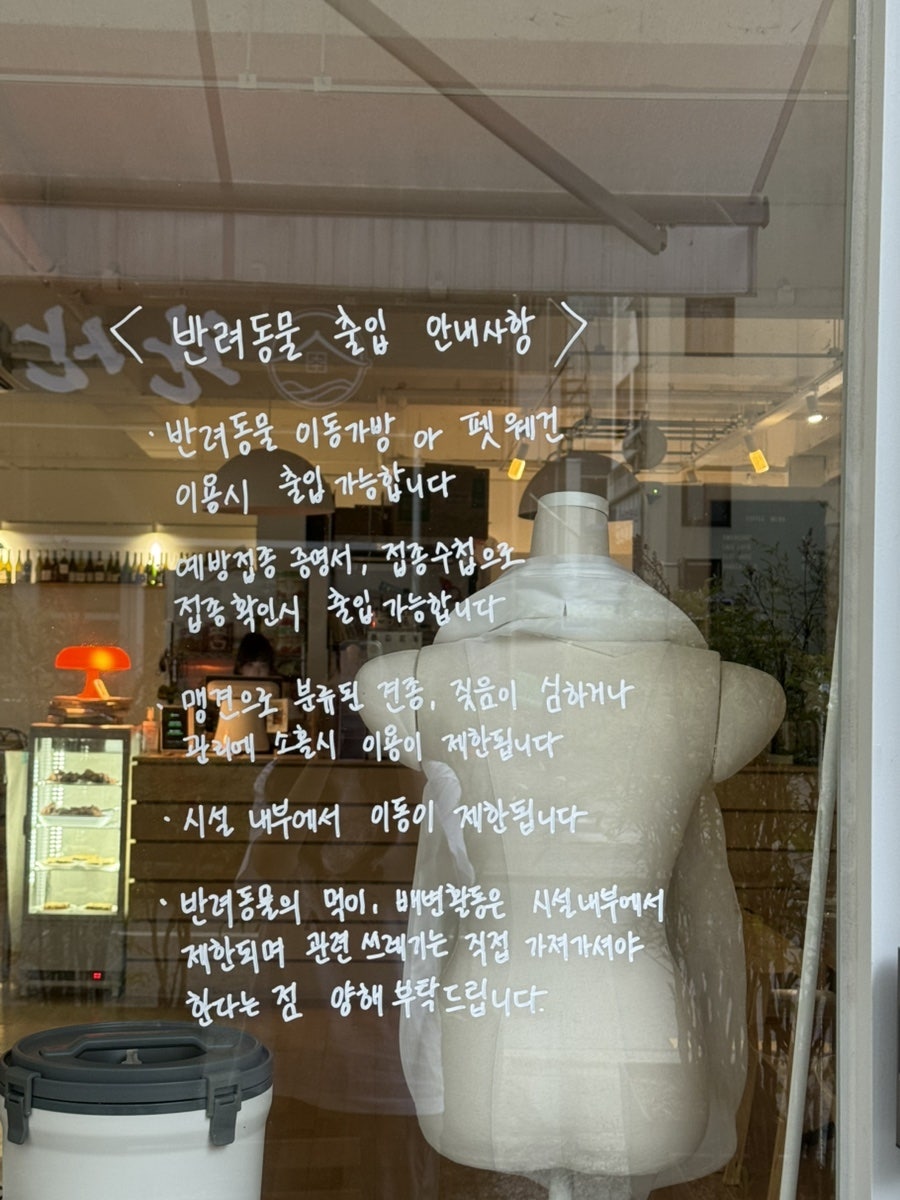 < 반려동물 출입 안내사항 >
· 반려동물 이동가방 or 펫 웨건
이용시 출입 가능합니다
· 예방접종 증명서, 접종수첩으로
접종확인시 출입 가능합니다
· 맹견으로 분류된 견종, 짖음이 심하거나
관리에 소홀시 이용이 제한됩니다
· 시설 내부에서 이동이 제한됩니다
· 반려동물의 먹이, 배변활동은 시설내부에서
제한되며 관련 쓰레기는 직접 가져가셔야
한다는 점 양해 부탁드립니다.